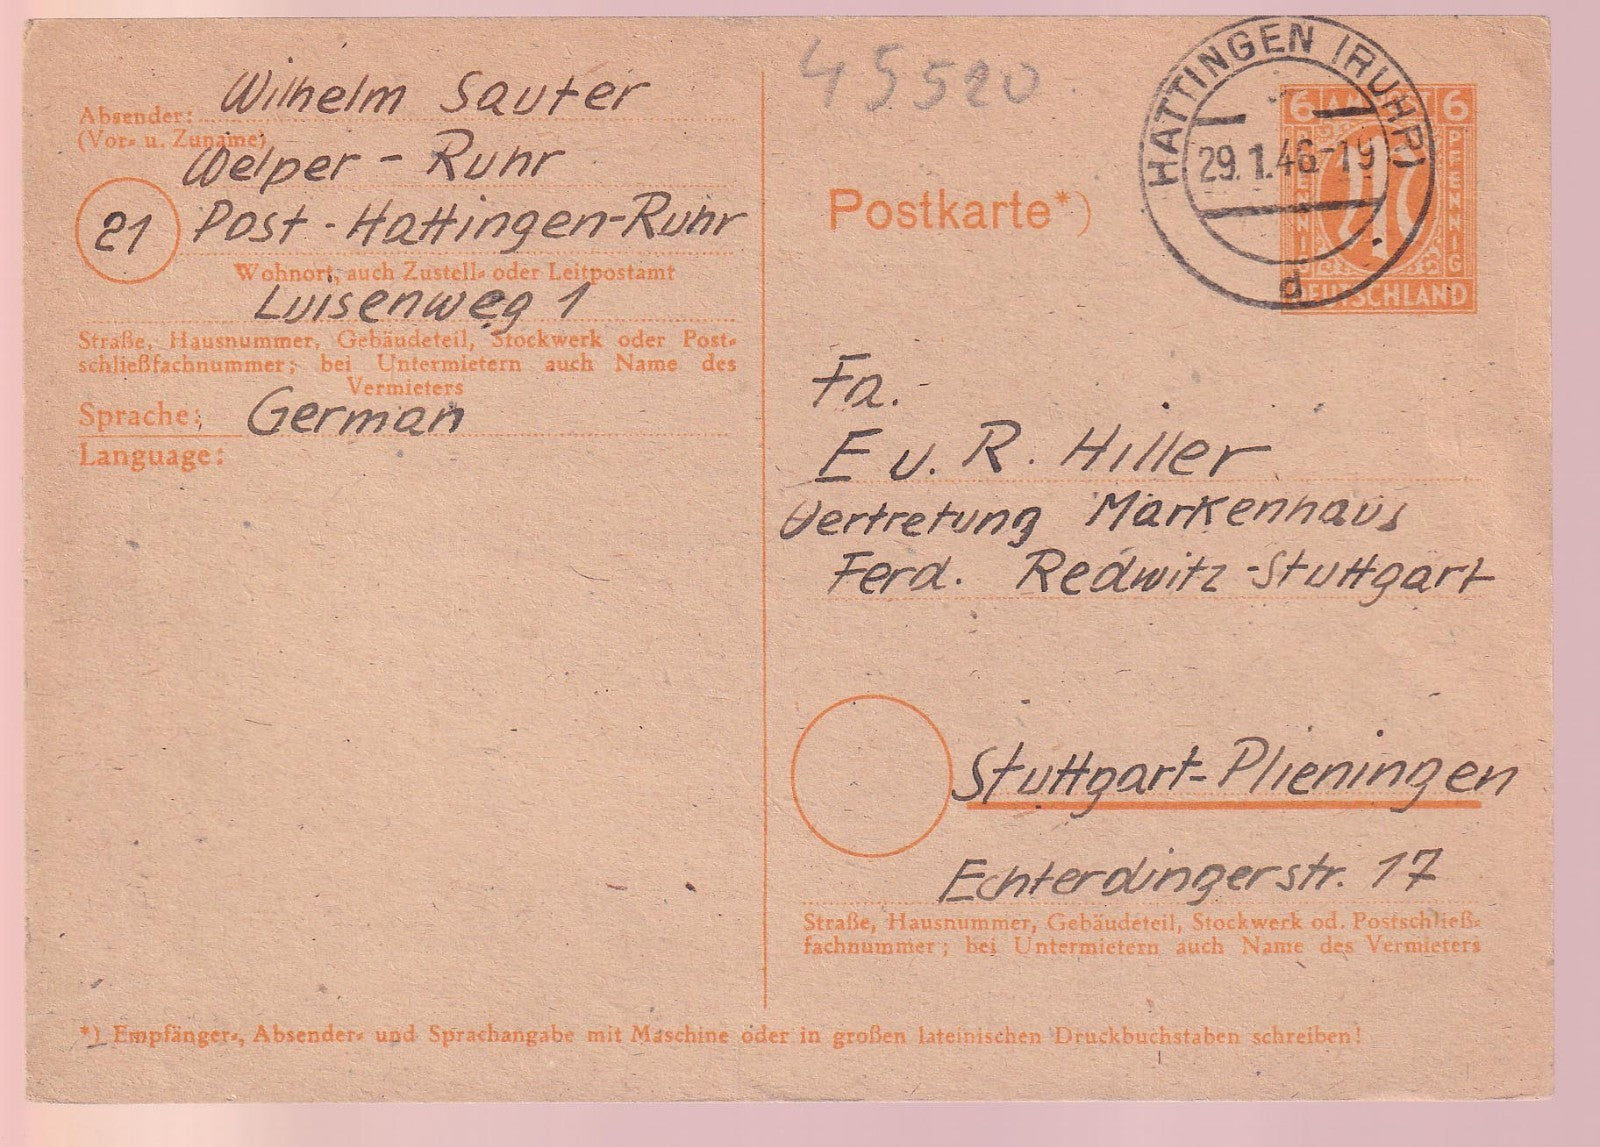 Absender: Wilhelm Sauter
(Vor- u. Zuname)
Welper - Ruhr
21 Post - Hattingen-Ruhr
Wohnort, auch Zustell- oder Leitpostamt
Luisenweg 1
Straße, Hausnummer, Gebäudeteil, Stockwerk oder Post-
schließfachnummer; bei Untermietern auch Name des
Vermieters
Sprache: German
Language:
45520
HATTINGEN (RUHR)
29.1.46-19
d
6 6
PFENNIG PFENNIG
DEUTSCHLAND
Postkarte*)
Fa.
E u. R. Hiller
Vertretung Markenhaus
Ferd. Redwitz-Stuttgart
Stuttgart-Plieningen
Echterdingerstr. 17
Straße, Hausnummer, Gebäudeteil, Stockwerk od. Postschließ-
fachnummer; bei Untermietern auch Name des Vermieters
*) Empfänger-, Absender- und Sprachangabe mit Maschine oder in großen lateinischen Druckbuchstaben schreiben!